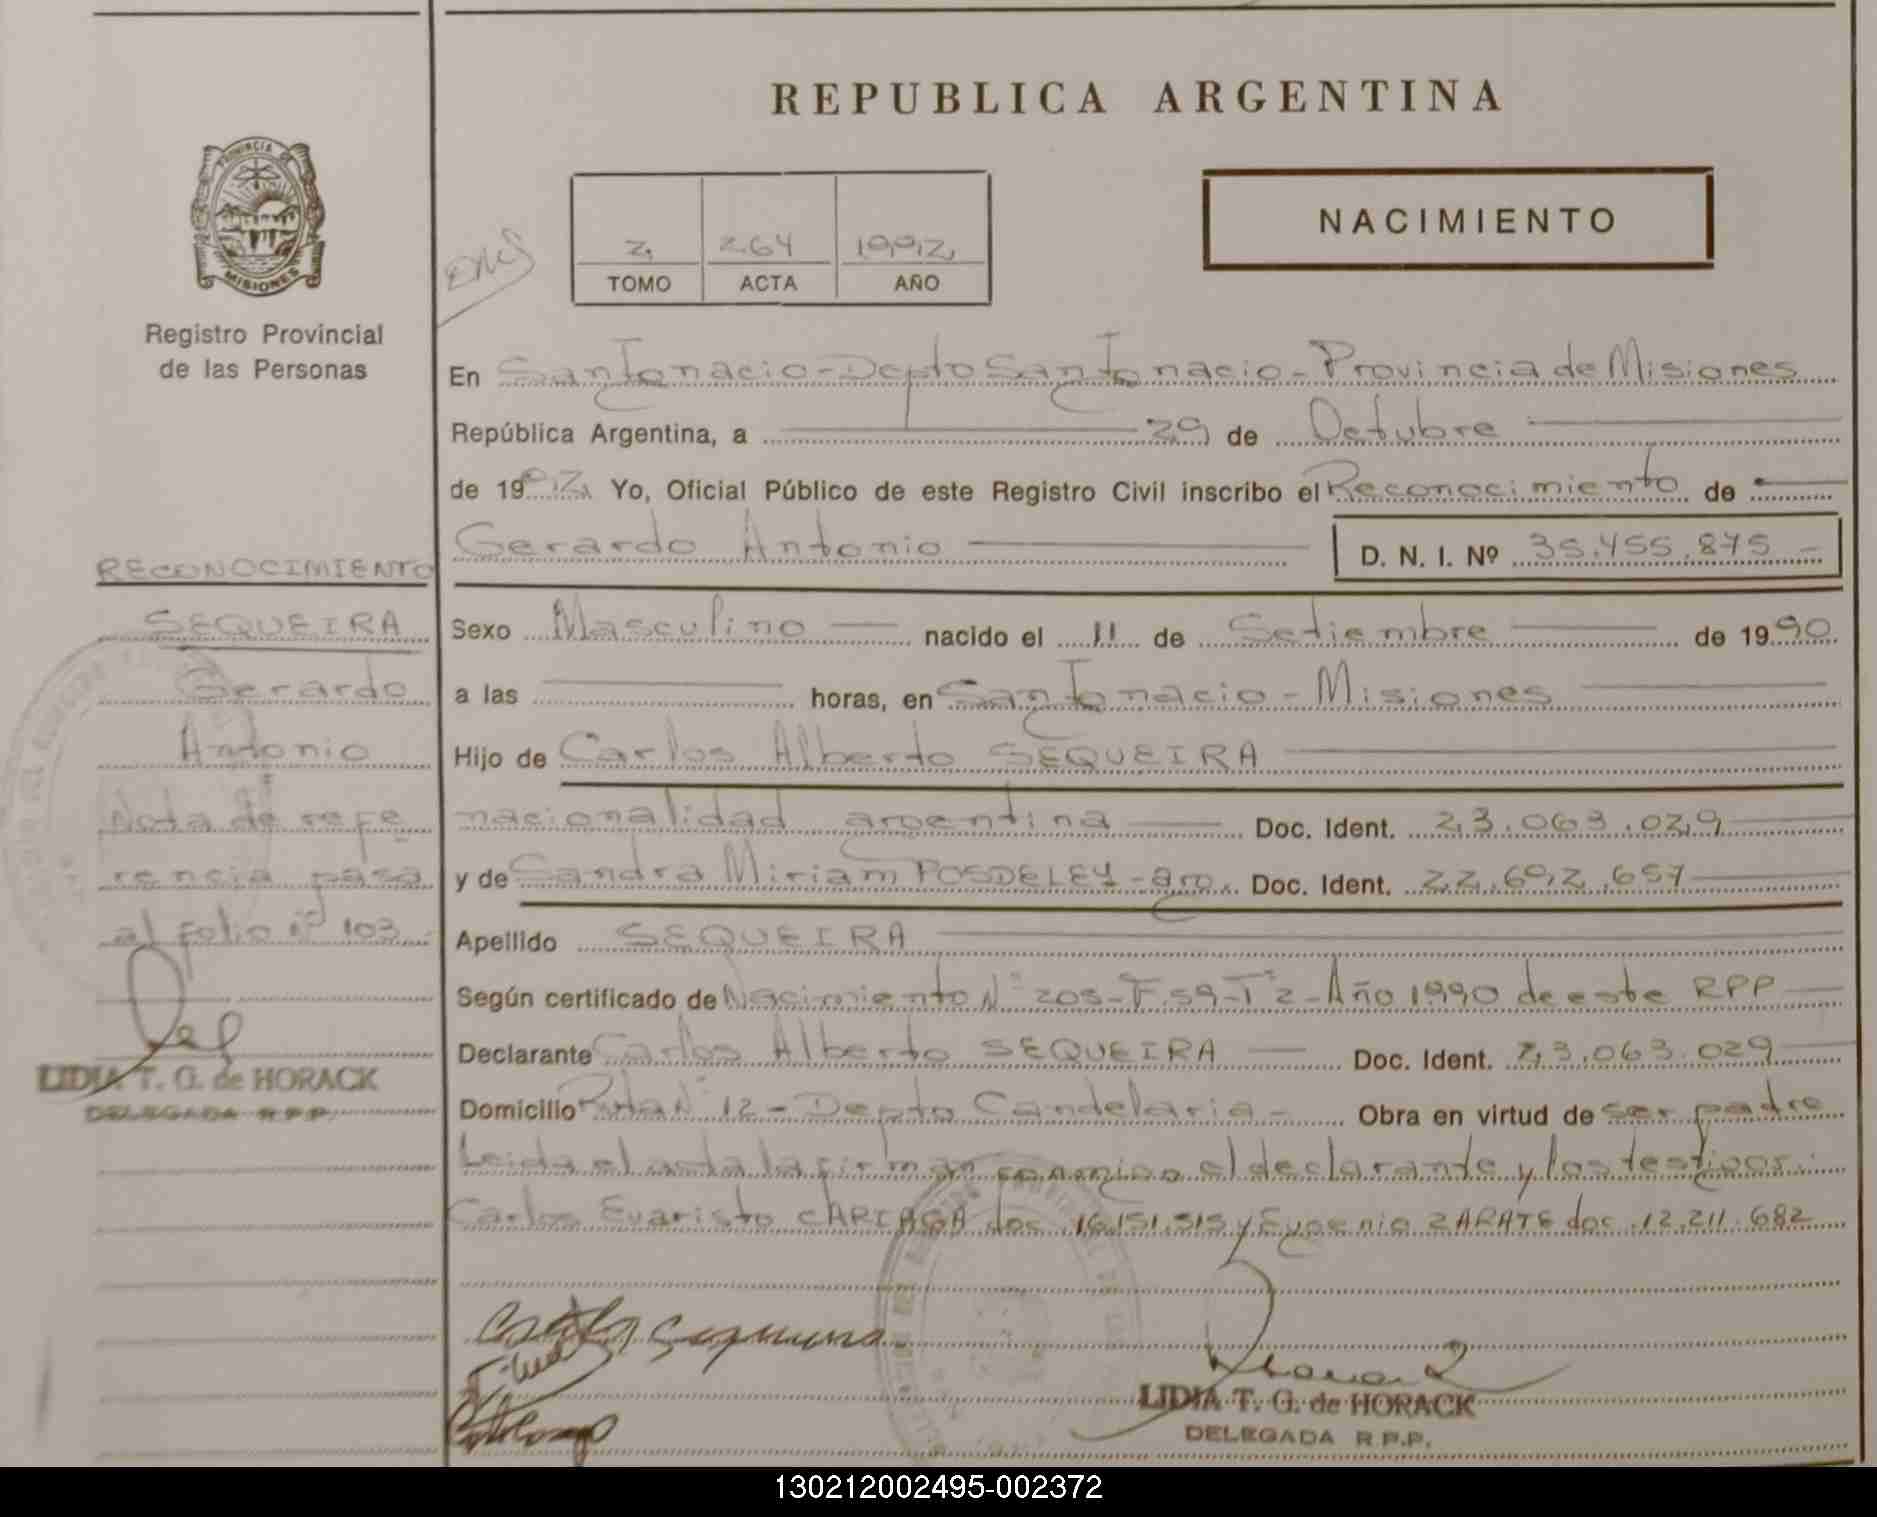 REPUBLICA ARGENTINA
PROVINCIA DE
MISIONES
Registro Provincial
de las Personas
NACIMIENTO
2 264 1992
TOMO ACTA AÑO
En San Ignacio - Depto San Ignacio - Provincia de Misiones
República Argentina, a 29 de Octubre
de 1992 Yo, Oficial Público de este Registro Civil inscribo el Reconocimiento de
Gerardo Antonio D. N. I. Nº 35.455.875 -
Sexo Masculino nacido el 11 de Setiembre de 1990
a las horas, en San Ignacio - Misiones
Hijo de Carlos Alberto SEQUEIRA
nacionalidad argentina Doc. Ident. 23.063.029
y de Sandra Miriam POSDELEY - arg. Doc. Ident. 22.692.657
Apellido SEQUEIRA
Según certificado de Nacimiento Nº 205 - F.59 - Tº2 - Año 1990 de este RPP
Declarante Carlos Alberto SEQUEIRA Doc. Ident. 23.063.029
Domicilio Ruta Nº 12 - Depto Candelaria - Obra en virtud de ser padre
Leida el acta la firman conmigo el declarante y los testigos:
Carlos Evaristo CARIAGA doc. 16.151.515 y Eugenio ZARATE doc. 12.211.682
LIDIA T. G. de HORACK
DELEGADA R.P.P.
RECONOCIMIENTO
SEQUEIRA
Gerardo
Antonio
Nota de refe
rencia pasa
al folio nº 103
LIDIA T. G. de HORACK
DELEGADA R.P.P.
130212002495-002372